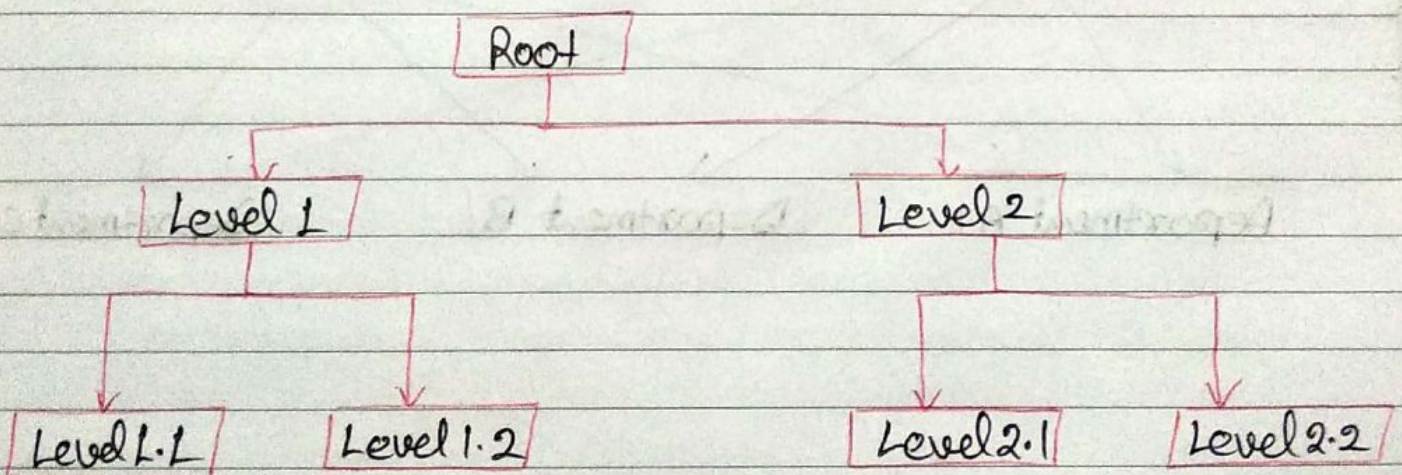 Root
Level 1 Level 2
Level 1.1 Level 1.2 Level 2.1 Level 2.2